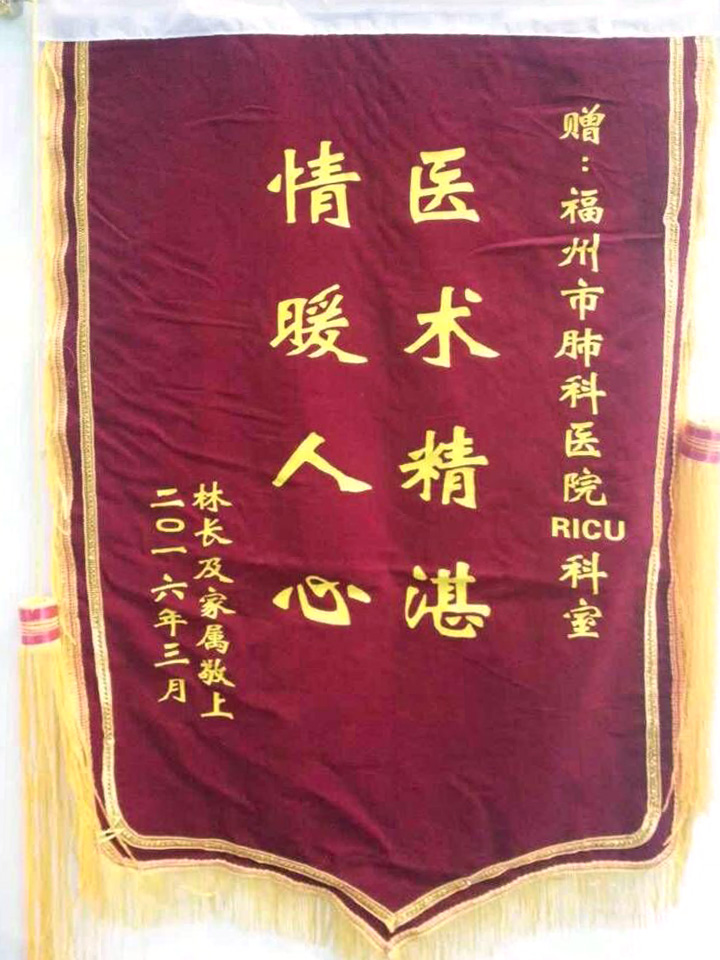 赠：福州市肺科医院RICU科室
医术精湛
情暖人心
林长及家属敬上
二〇一六年三月